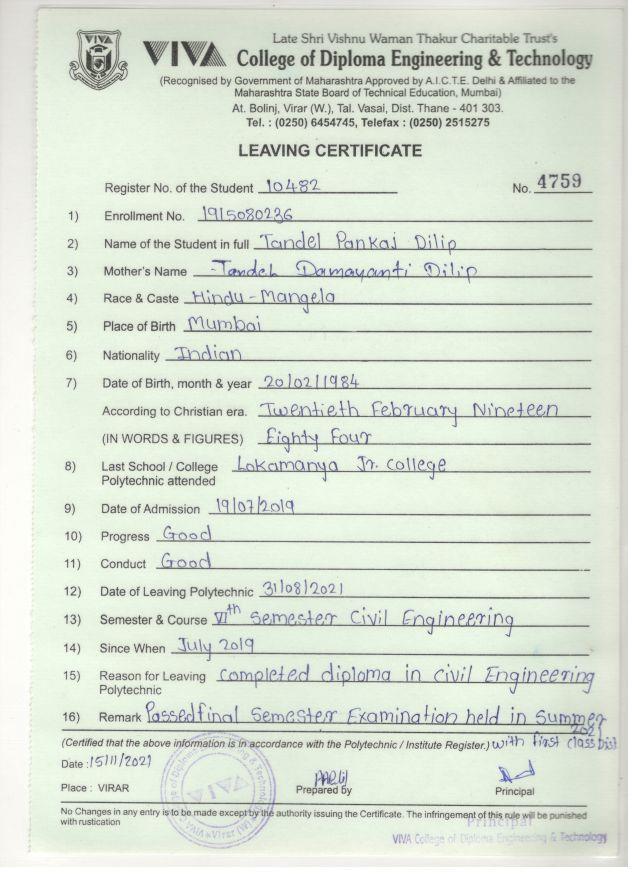 Late Shri Vishnu Waman Thakur Charitable Trust's
VIVA
VIVA College of Diploma Engineering & Technology
(Recognised by Government of Maharashtra Approved by A.I.C.T.E. Delhi & Affiliated to the
Maharashtra State Board of Technical Education, Mumbai)
At. Bolinj, Virar (W.), Tal. Vasai, Dist. Thane - 401 303.
Tel. : (0250) 6454745, Telefax : (0250) 2515275
LEAVING CERTIFICATE
Register No. of the Student 10482 No. 4759
1) Enrollment No. 1915080236
2) Name of the Student in full Tandel Pankaj Dilip
3) Mother's Name Tandel Damayanti Dilip
4) Race & Caste Hindu - Mangela
5) Place of Birth Mumbai
6) Nationality Indian
7) Date of Birth, month & year 20/02/1984
According to Christian era. Twentieth February Nineteen
(IN WORDS & FIGURES) Eighty Four
8) Last School / College Lokamanya Jr. College
Polytechnic attended
9) Date of Admission 19/07/2019
10) Progress Good
11) Conduct Good
12) Date of Leaving Polytechnic 31/08/2021
13) Semester & Course VIth Semester Civil Engineering
14) Since When July 2019
15) Reason for Leaving completed diploma in civil Engineering
Polytechnic
16) Remark Passed final Semester Examination held in Summer
2021
(Certified that the above information is in accordance with the Polytechnic / Institute Register.) with first class Dist
Date : 15/11/2021
Place : VIRAR Prepared by Principal
No Changes in any entry is to be made except by the authority issuing the Certificate. The infringement of this rule will be punished
with rustication
Principal
VIVA College of Diploma Engineering & Technology